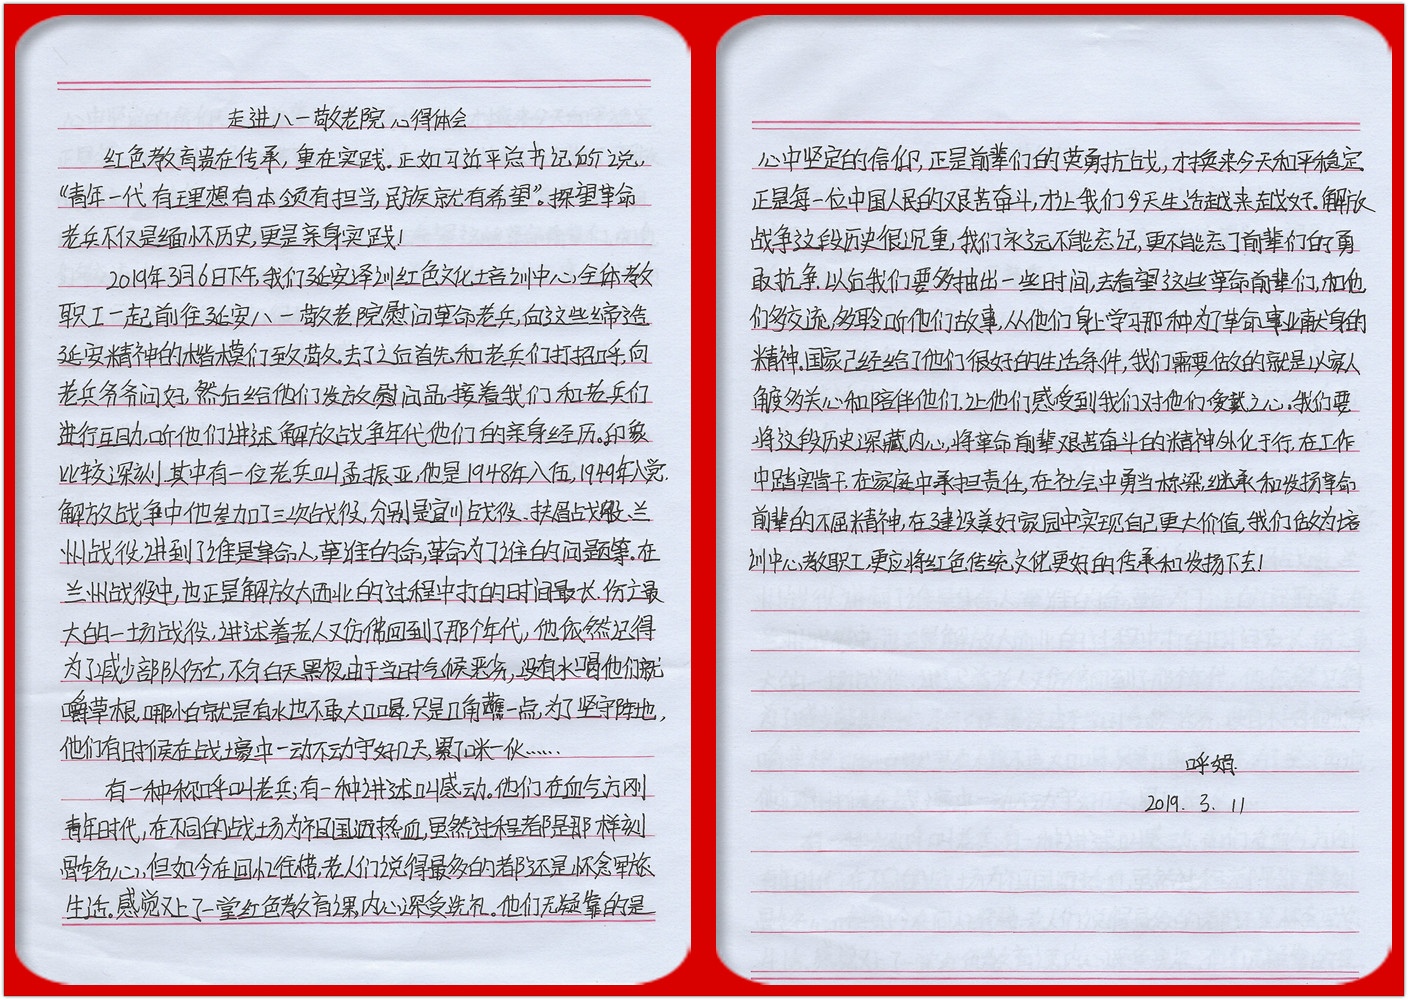 走进八一敬老院心得体会
红色教育贵在传承，重在实践。正如习近平总书记所说，
“青年一代有理想有本领有担当，民族就有希望”。探望革命
老兵不仅是缅怀历史，更是亲身实践！
2019年3月6日下午，我们延安泽训红色文化培训中心全体教
职工一起前往延安八一敬老院慰问革命老兵，向这些缔造
延安精神的楷模们致敬。去了之后首先和老兵们打招呼，向
老兵爷爷问好，然后给他们发放慰问品。接着我们和老兵们
进行互动，听他们讲述解放战争年代他们的亲身经历。印象
比较深刻其中有一位老兵叫孟振亚，他是1948年入伍，1949年入党。
解放战争中他参加了三次战役，分别是宜川战役、扶眉战役、兰
州战役，讲到了谁是革命人，革谁的命，革命为了谁的问题等。在
兰州战役中，也正是解放大西北的过程中打的时间最长、伤亡最
大的一场战役，讲述着老人又仿佛回到了那个年代，他依然记得
为了减少部队伤亡，不分白天黑夜，由于当时气候恶劣，没有水喝他们就
嚼草根，哪怕就是有水也不敢大口喝，只是几角蘸一点，为了坚守阵地，
他们有时候在战壕中一动不动守好几天，累了眯一伙……
有一种称呼叫老兵；有一种讲述叫感动。他们在血气方刚
青年时代，在不同的战场为祖国洒热血，虽然过程都是那样刻
骨铭心，但如今在回忆往惜，老人们说得最多的都还是怀念军旅
生活。感觉又上了一堂红色教育课，内心深受洗礼。他们无疑靠的是
心中坚定的信仰，正是前辈们的英勇抗战，才换来今天和平稳定
正是每一位中国人民的艰苦奋斗，才让我们今天生活越来越好。解放
战争这段历史很沉重，我们永远不能忘记，更不能忘了前辈们的勇
敢抗争。以后我们要多抽出一些时间，去看望这些革命前辈们，和他
们多交流，多聆听他们故事，从他们身上学习那种为了革命事业献身的
精神。国家已经给了他们很好的生活条件，我们需要做的就是以家人
角度多关心和陪伴他们，让他们感受到我们对他们爱戴之心。我们要
将这段历史深藏内心，将革命前辈艰苦奋斗的精神外化于行，在工作
中踏实肯干，在家庭中承担责任，在社会中勇当栋梁，继承和发扬革命
前辈的不屈精神，在建设美好家园中实现自己更大价值，我们做为培
训中心教职工更应将红色传统文化更好的传承和发扬下去！
呼娟
2019. 3. 11